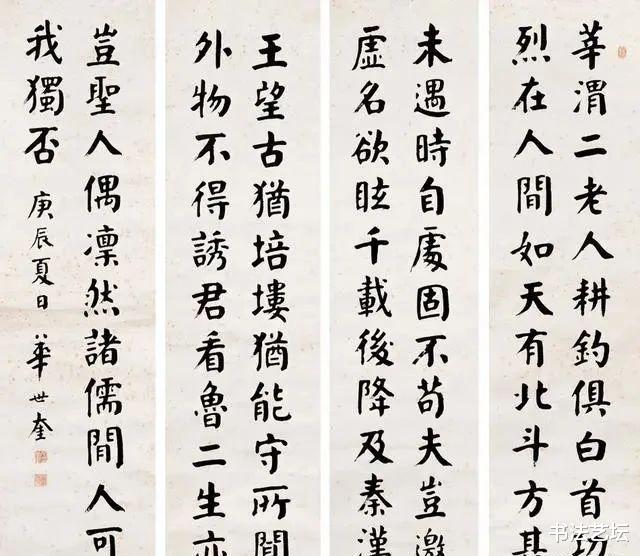 莘渭二老人耕釣俱白首功
烈在人間如天有北斗方其
未遇時自處固不苟夫豈邀
虛名欲眩千載後降及秦漢
王望古猶培塿猶能守所聞
外物不得誘君看魯二生亦
豈聖人偶凜然諸儒間人可
我獨否
庚辰夏日 華世奎
书法艺坛